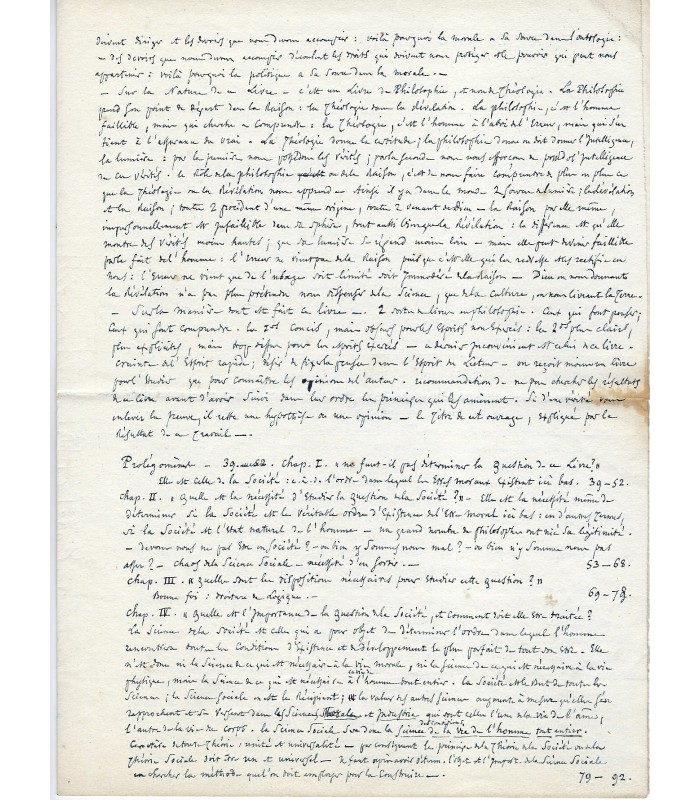 doivent diriger et les devoirs que nous devons accomplir : voilà pourquoi la morale a sa source dans l'ontologie :
— des devoirs que nous devons accomplir découlent les droits qui doivent nous protéger et le pouvoir qui peut nous
appartenir : voilà pourquoi la politique a sa source dans la morale. —
— Sur la Nature de ce Livre — c'est un Livre de Philosophie, et non de Théologie. La Philosophie
prend son point de départ dans la Raison : la Théologie dans la Révélation. La philosophie, c'est l'homme
faillible, mais qui cherche à Comprendre : la Théologie, c'est l'homme à l'abri de l'Erreur, mais qui s'en
tient à l'assurance du vrai. La Théologie donne la certitude ; la philosophie donne ou doit donner l'Intelligence,
la lumière : par la première nous possédons les Vérités ; par la seconde nous nous efforçons de posséder l'Intelligence
de ces Vérités. Le Rôle de la philosophie ou de la Raison, c'est de nous faire Comprendre de plus en plus ce
que la Théologie ou la Révélation nous apprend — Ainsi il y a dans le monde 2 Sources de lumière ; la Révélation
et la Raison ; toute 2 procédant d'une même origine, toute 2 venant de Dieu — la Raison par elle même,
impersonnellement est Infaillible dans sa sphère, tout aussi bien que la Révélation : la différence est qu'elle
montre des Vérités moins hautes ; que sa lumière se répand moins loin — mais elle peut devenir faillible
par le fait de l'homme : l'Erreur ne vient pas de la Raison puisque c'est elle qui la redresse et la rectifie en
nous : l'Erreur ne vient que de l'usage soit limité soit immodéré de la Raison — Dieu en nous donnant
la Révélation n'a pas plus prétendu nous dispenser de la Science, que de la Culture, en nous livrant la Terre. —
— Sur la Manière dont est fait ce livre —. 2 sortes de livres en philosophie. Ceux qui font penser ;
Ceux qui font comprendre. Les 1ers Concis, mais obscurs pour les Esprits non Exercés : les 2ds plus clairs,
plus explicites, mais trop diffus pour les esprits Exercés — ce dernier Inconvénient est celui de ce livre. —
crainte de l'Esprit rapide ; désir de fixer la pensée dans l'Esprit du Lecteur — on reçoit mieux un livre
pour l'Etudier que pour connaître les opinions de l'auteur. recommandation de ne pas chercher les résultats
de ce livre avant d'avoir suivi dans leur ordre les principes qui les amènent. Si d'une vérité vous
enlevez la preuve, il reste une hypothèse ou une opinion — le Titre de cet ouvrage, expliqué par le
Résultat de ce Travail. —
Prolégomènes — 39 Chap. I. « ne faut-il pas déterminer la Question de ce Livre ? »
Elle est celle de la Société : c. à. d. l'ordre dans lequel les Etres moraux Existent ici bas. 39-52.
Chap. II. « Quelle est la nécessité d'Etudier la Question de la Société ? » — Elle est la nécessité même de
déterminer si la Société est le Véritable ordre d'Existence de l'Etre moral ici bas : en d'autres termes,
si la Société est l'Etat naturel de l'homme — un grand nombre de philosophes ont nié sa légitimité. —
— devons nous ne pas être en société ? — ou bien y sommes nous mal ? — ou bien n'y sommes nous pas
assez ? — chaos de la Science Sociale — nécessité d'en sortir. — 53-68.
Chap. III. « Quelles sont les dispositions nécessaires pour étudier cette question ? »
Bonne foi : droiture de logique. — 69-78.
Chap. IV. « Quelle est l'Importance de la Question de la Société, et Comment doit elle être traitée ?
La Science de la Société est celle qui a pour objet de déterminer l'ordre dans lequel l'homme
rencontrera toutes les Conditions d'Existence et de développement le plus parfait de tout son être. Elle
n'est donc ni la Science de ce qui est nécessaire à la vie morale, ni la Science de ce qui est nécessaire à la vie
physique ; mais la Science de ce qui est nécessaire à l'homme tout entier. La Société est le but de toutes les
Sciences ; la Science Sociale en est le Récipient ; la valeur des autres Sciences augmente à mesure qu'elles s'en
rapprochent et se versent dans les Sciences et Industrie qui sont celles l'une de la vie de l'âme,
l'autre de la vie du corps. La Science Sociale sera donc la Science de la vie de l'homme tout entier.
Caractère de toute Théorie : unité et universalité — par conséquent le principe de la Théorie de la Société ou de la
Théorie Sociale doit être un et universel — l'objet et l'Import. de la Science Sociale
en chercher la méthode que l'on doit employer pour la Construire —. 79-92.